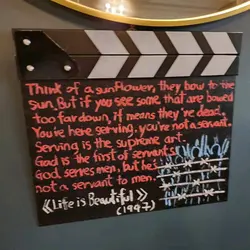 Think of a sunflower, they bow to the
sun. But if you see some that are bowed
too far down, it means they're dead.
You're here serving, you're not a servant.
Serving is the supreme art.
God is the first of servants.
God serves men, but he's
not a servant to men.
《Life is Beautiful》
(1997)